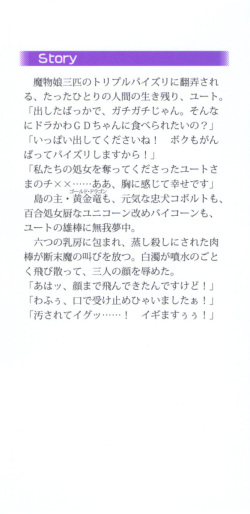 Story
魔物娘三匹のトリプルパイズリに翻弄され
る、たったひとりの人間の生き残り、ユート。
「出したばっかで、ガチガチじゃん。そんな
にドラかわＧＤちゃんに食べられたいの？」
「いっぱい出してくださいね！　ボクもがん
ばってパイズリしますから！」
「私たちの処女を奪ってくださったユートさ
まのチ××……ああ、胸に感じて幸せです」
ゴールド・ドラゴン
島の主・黄金竜も、元気な忠犬コボルトも、
百合処女厨なユニコーン改めバイコーンも、
ユートの雄棒に無我夢中。
六つの乳房に包まれ、蒸し殺しにされた肉
棒が断末魔の叫びを放つ。白濁が噴水のごと
く飛び散って、三人の顔を辱めた。
「あはッ、顔まで飛んできたんですけど！」
「わふぅ、口で受け止めひゃいましたぁ！」
「汚されてイグッ……！　イギますぅぅ！」